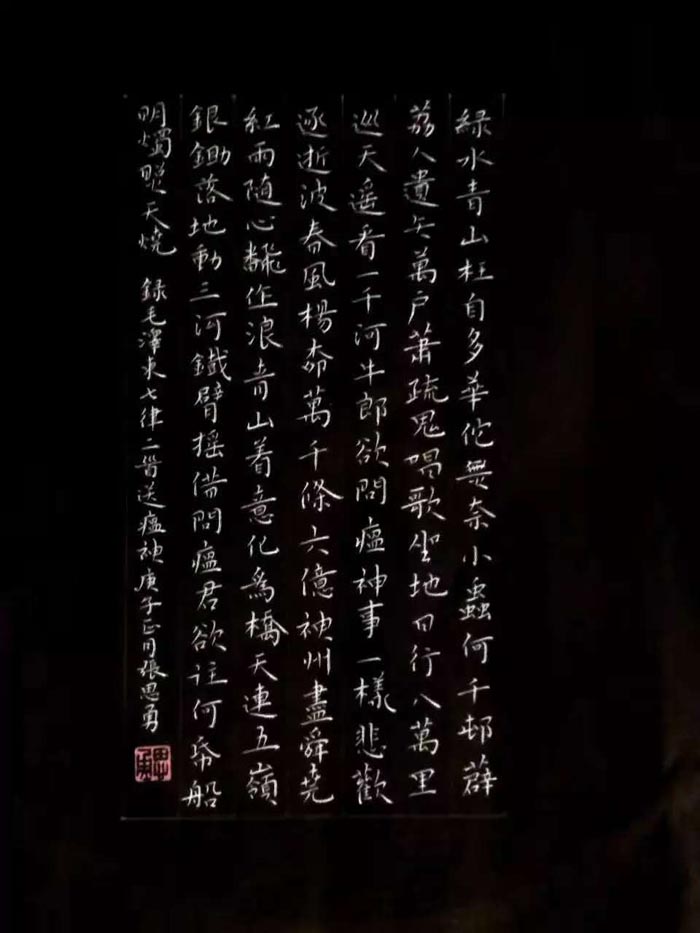 綠水青山枉自多華佗無奈小蟲何千邨薜
荔人遺矢萬户蕭疏鬼唱歌坐地日行八萬里
巡天遥看一千河牛郎欲問瘟神事一樣悲歡
逐逝波春風楊柳萬千條六億神州盡舜堯
紅雨隨心飜作浪青山着意化爲橋天連五嶺
銀鋤落地動三河鐵臂摇借問瘟君欲往何帋船
明燭照天燒 録毛澤東七律二首送瘟神庚子正月張思勇